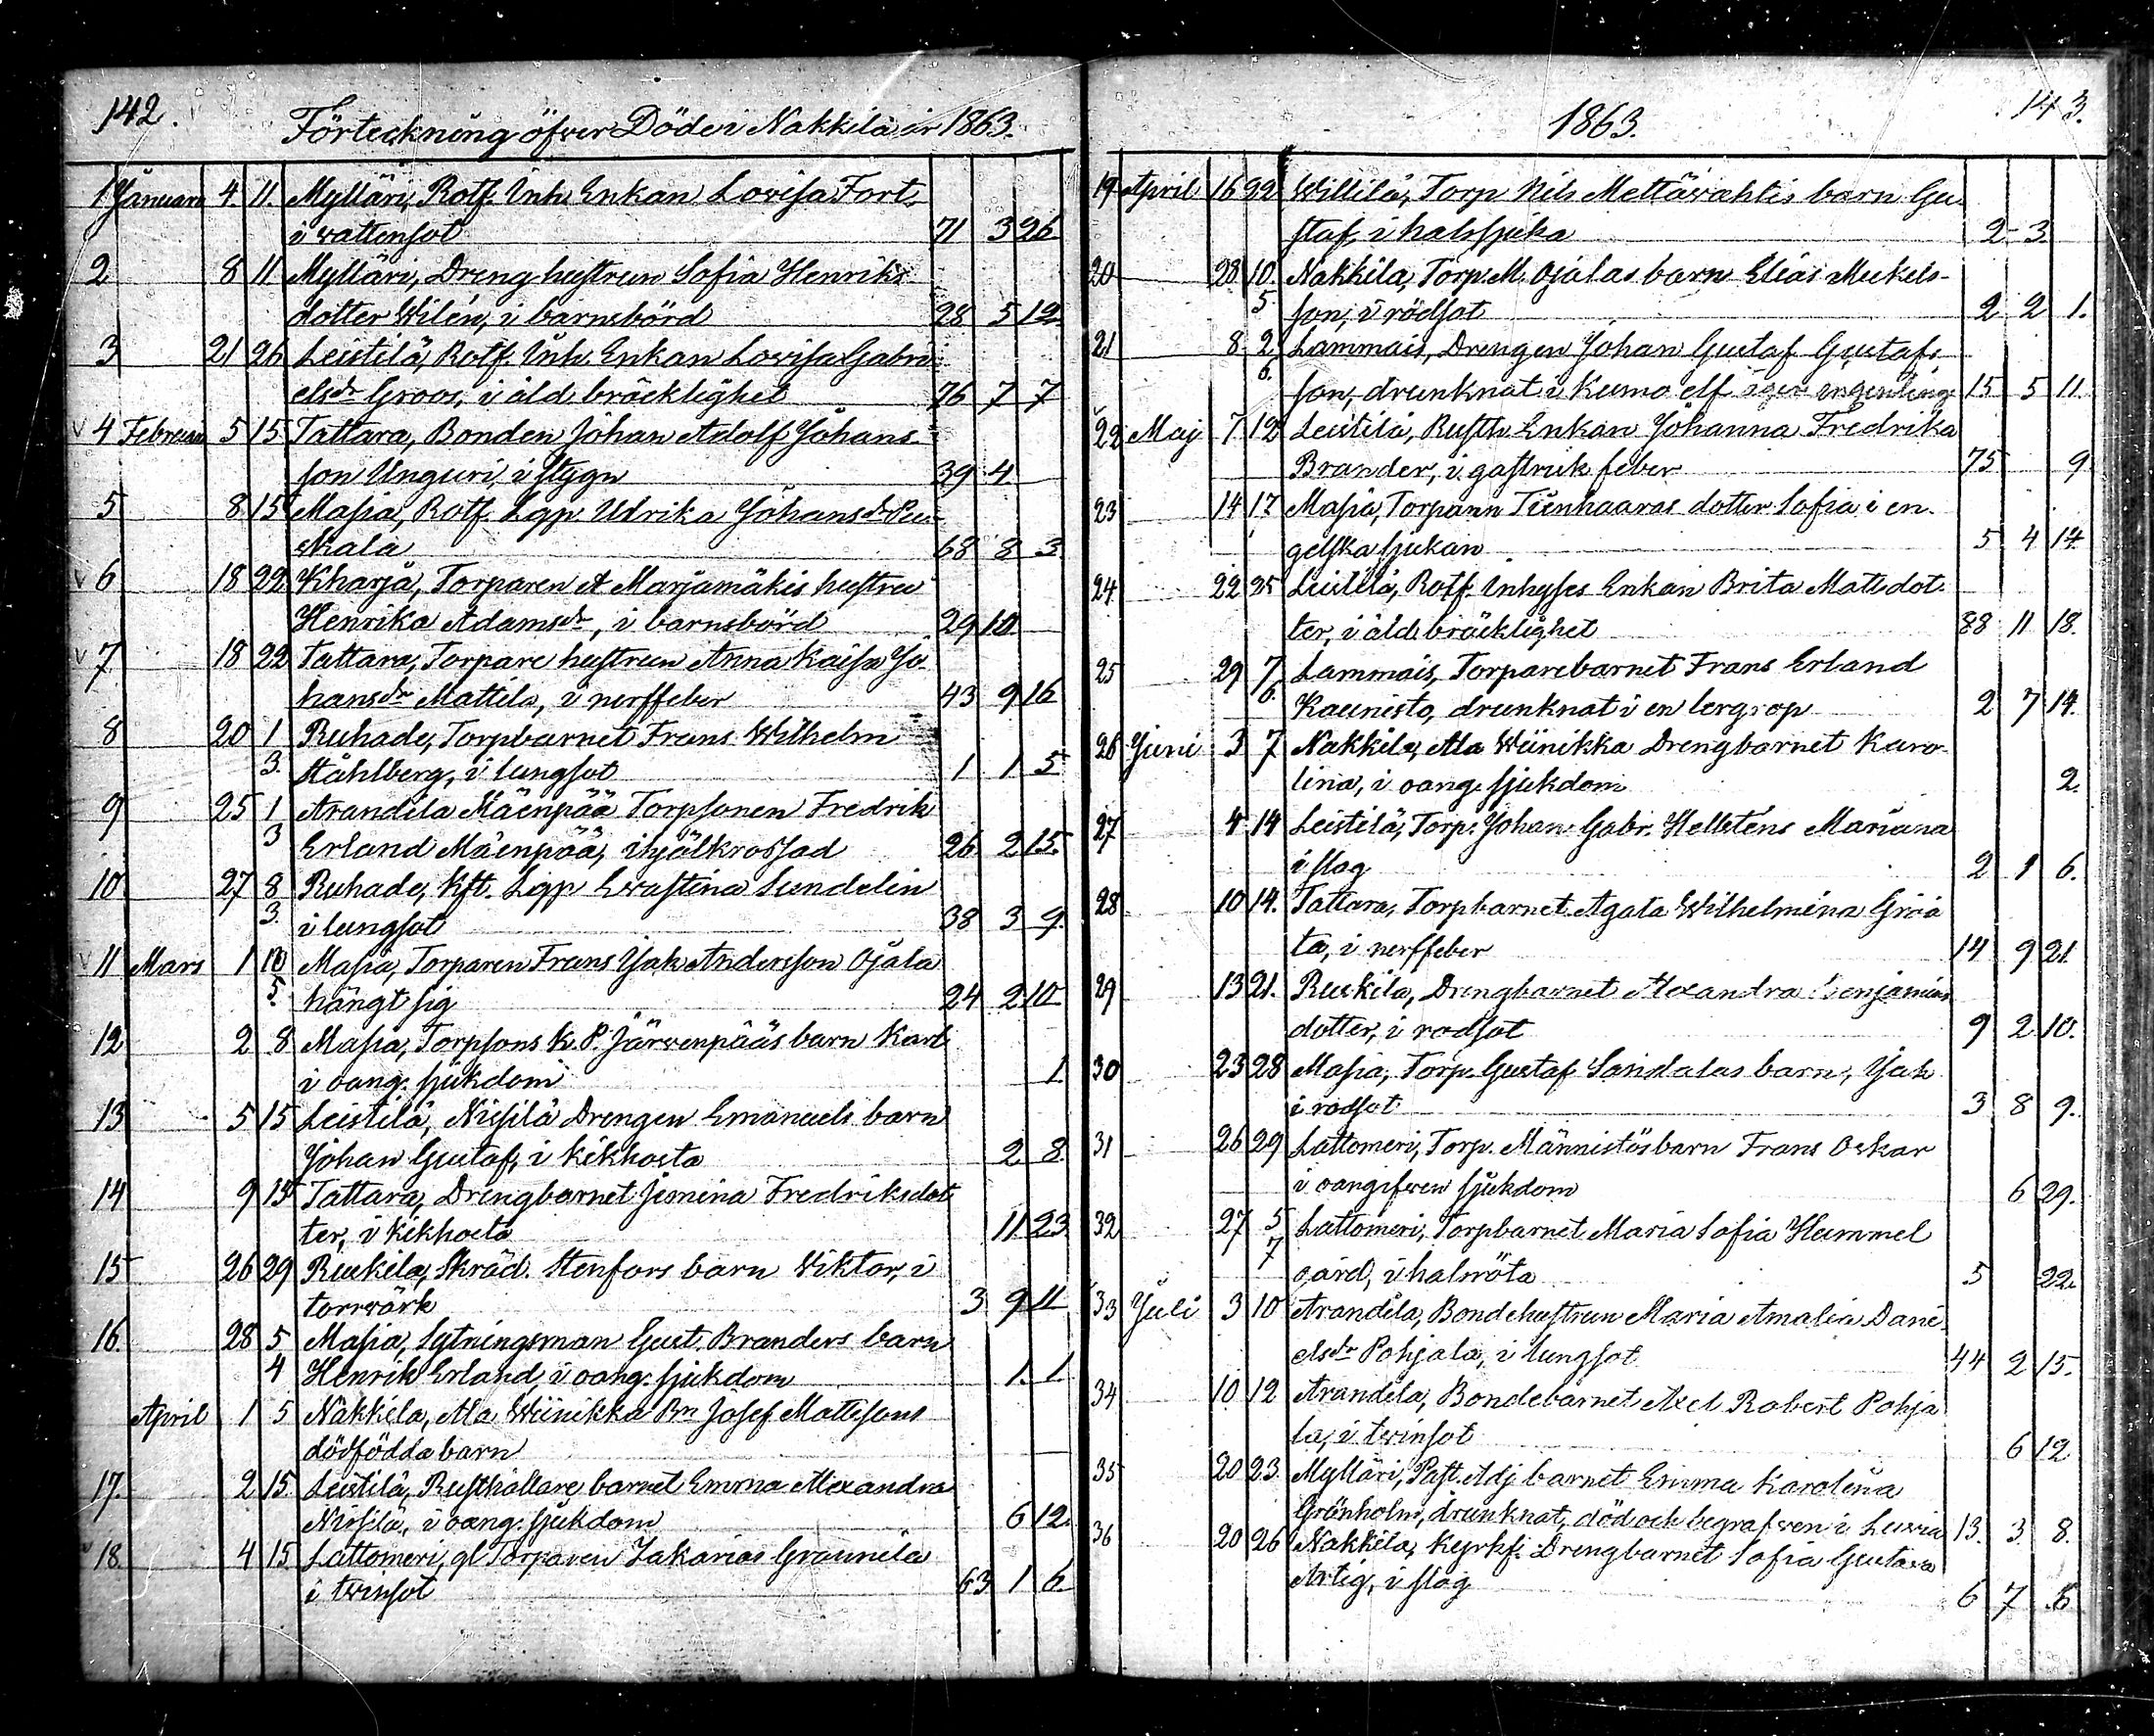 142.
Förteckning öfver Döde i Nakkila år 1863.
1 Januari 4 11. Mylläri, Rotf. Inh. Enkan Lovisa Fort,
i wattensot 71 3 26
2 8 11 Mylläri, Dreng hustrun Sofia Henriks
dotter Wilén, i barnsbörd 28 5 12
3 21 26 Leistilä, Rotf. Inh. Enkan Lovisa Gabri
elsdr Groos, i åld. bräcklighet 76 7 7
v 4 Februari 5 15 Tattara, Bonden Johan Adolf Johans
son Unguri, i stygn 39 4
5 8 15 Masia, Rotf. Lgp. Ulrika Johansdr Ru
skala 68 8 3
v 6 18 22 Kharja, Torparen A Marjamäkis hustru
Henrika Adamsdr, i barnsbörd 29 10
v 7 18 22 Tattara, Torpare hustrun Anna Kaisa Jo
hansdr Mattila, i nerffeber 43 9 16
8 20 1 Ruhade, Torpbarnet Frans Wilhelm
3. Ståhlberg, i lungsot 1 1 5
9 25 1 Arandila Mäenpää Torpsonen Fredrik
3 Erland Mäenpää, ihjälkrossad 26 2 15.
10 27 8 Ruhade, Kft. Lgp Ewastina Sundelin
3. i lungsot 38 3 9.
v 11 Mars 1 10 Masia, Torparen Frans Jak Andersson Ojala
5. hängt sig 24 2 10
12 2 8 Masia, Torpsons K. P. Järwenpääs barn Karl
i oang. sjukdom 1.
13 5 15 Leistilä, Nissilä Drengen Emanuels barn
Johan Gustaf, i kikhosta 2 8.
14 9 15 Tattara, Drengbarnet Jemina Fredriksdot
ter, i kikhosta 11 23
15 26 29 Ruskila, Skräd. Stenfors barn Wiktor, i
torrwärk 3 9 11
16. 28 5 Masia, Sytningsman Gust. Branders barn
4 Henrik Erland, i oang. sjukdom 1. 1
April 1 5 Nakkila, Ala Wiinikka Bn Josef Mattssons
dödfödda barn
17. 2 15. Leistilä, Rusthållare barnet Emma Alexandra
Nissilä, i oang. sjukdom 6 12.
18. 4 15 Lattomeri, gl Torparen Zakarias Grannila
i twinsot 63 1 6
1863.
143.
19 April 16 22 Willilä, Torp Nils Mettäwahtis barn Gu
staf, i halssjuka 2 3.
20 28 10. Nakkila, Torp. M. Ojalas barn Elias Mickels-
5 son, i rödsot 2 2 1.
21 8 2 Lammais, Drengen Johan Gustaf Gustafs
6. son, drunknat i Kumo elf 15 5 11.
22 Maj 7 12 Leistilä, Rusth. Enkan Johanna Fredrika
Brander, i gastrisk feber 75 9
23 14 17 Masia, Torparen Tiinhaaras dotter Sofia i en
gelska sjukan 5 4 14.
24 22 25 Leistilä, Rotf. Inhyses Enkan Brita Matsdot
ter, i åld. bräcklighet 88 11 18.
25 29 7 Lammais, Torparebarnet Frans Erland
6. Kaunisto, drunknat i en lergrop 2 7 14.
26 Juni 3 7 Nakkila, Ala Wiinikka Drengbarnet Karo
lina, i oang. sjukdom 2.
27 4 14 Leistilä, Torp. Johan Gabr. Hellsténs Mariana
i slag 2 1 6.
28 10 14. Tattara, Torpbarnet Agata Wilhelmina Gröö
ta, i nerffeber 14 9 21.
29 13 21. Ruskila, Drengbarnet Alexandra Benjamins
dotter, i rödsot 9 2 10.
30 23 28 Masia, Torp. Gustaf Sandalas barn, Jak
i rödsot 3 8 9.
31 26 29 Lattomeri, Torp. Männistös barn Frans Oskar
i oangifwen sjukdom 6 29.
32 27 5 Lattomeri, Torpbarnet Maria Sofia Hummel
7 gård, i halsröta 5 22.
33 Juli 3 10 Arandila, Bondehustrun Maria Amalia Dani
elsdr Pohjala, i lungsot 44 2 15.
34 10 12 Arandila, Bondebarnet Axel Robert Pohja
la, i twinsot 6 12
35 20 23. Mylläri, Past. Adj barnet Emma Karolina
Grönholm, drunknat, död och begrafwen i Luvia 13. 3 8.
36 20 26 Nakkila, Kyrkf. Drengbarnet Sofia Gustava
Artig, i slag 6 7 6